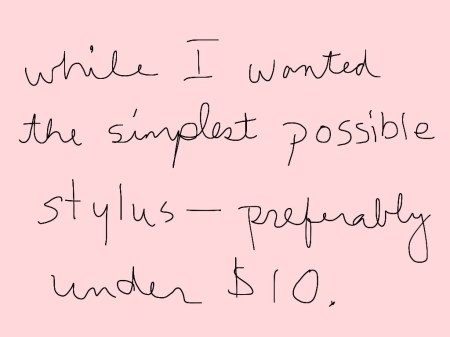 while I wanted
the simplest possible
stylus — preferably
under $10.